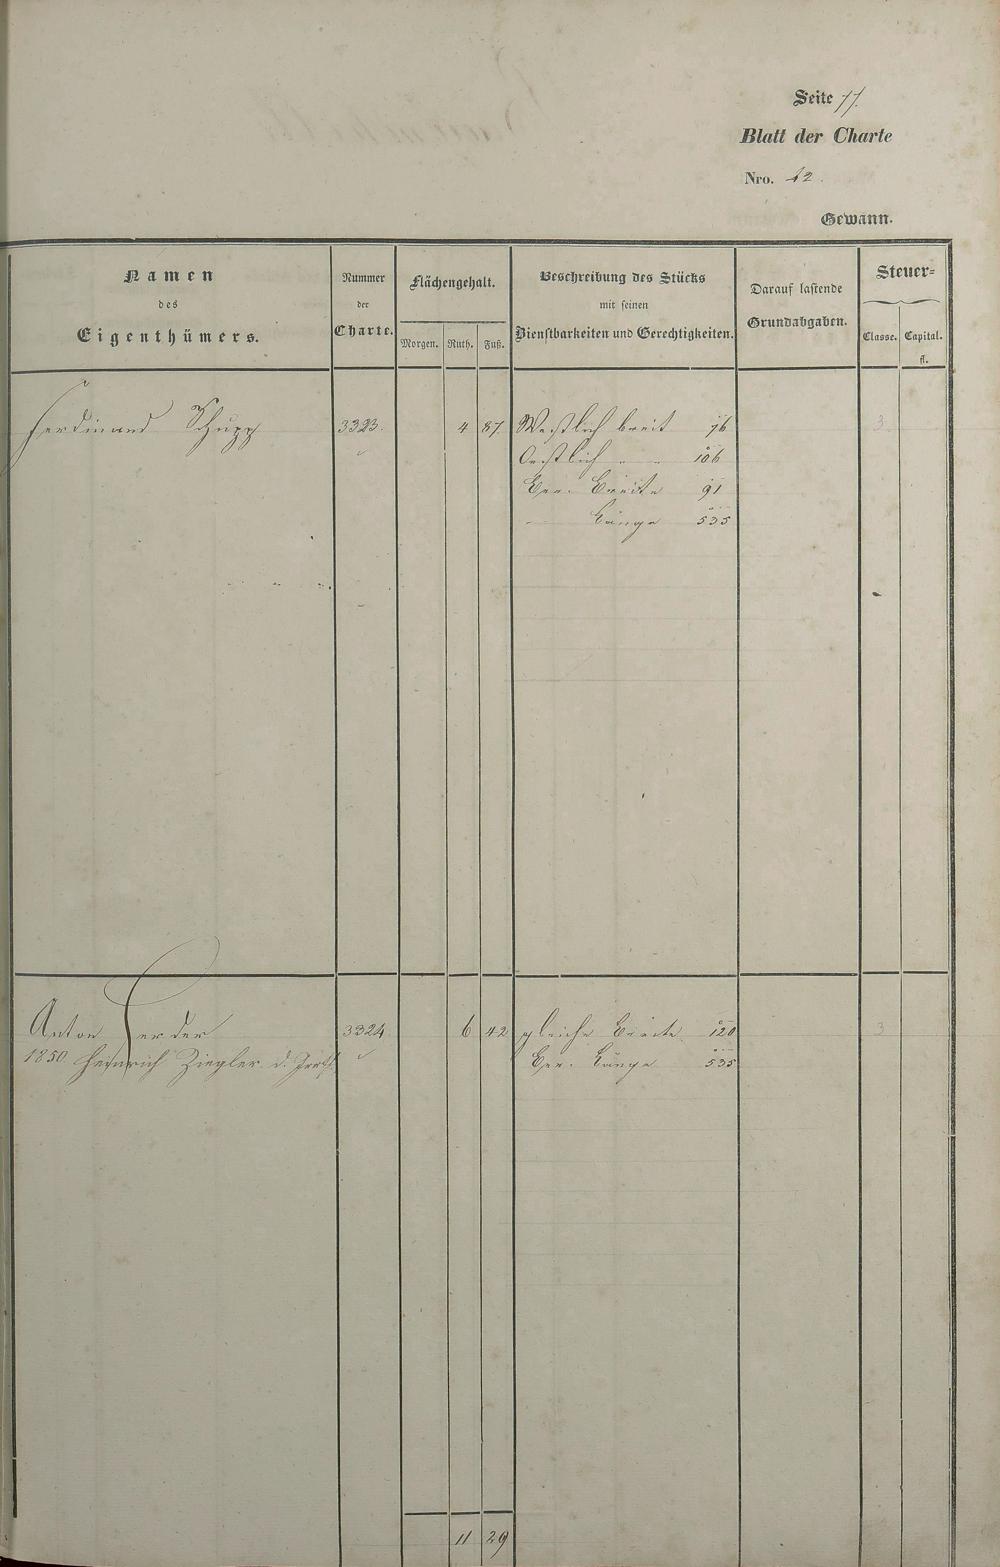 Seite 77.
Blatt der Charte
Nro. 42.
Gewann.
Namen
des
Eigenthümers.
Nummer
der
Charte.
Flächengehalt.
Morgen. Ruth. Fuß.
Beschreibung des Stücks
mit seinen
Dienstbarkeiten und Gerechtigkeiten.
Darauf lastende
Grundabgaben.
Steuer-
Classe. Capital.
fl.
Ferdinand Schupp 3323. 4 87. Westlich breit 76 3
Oestlich " " 106
Ger. Breite 91
" Länge 535
Anton Herder 3324. 6 42 gleiche Breite 120 3
1850 Heinrich Ziegler d. Ger. Länge 535
11 29